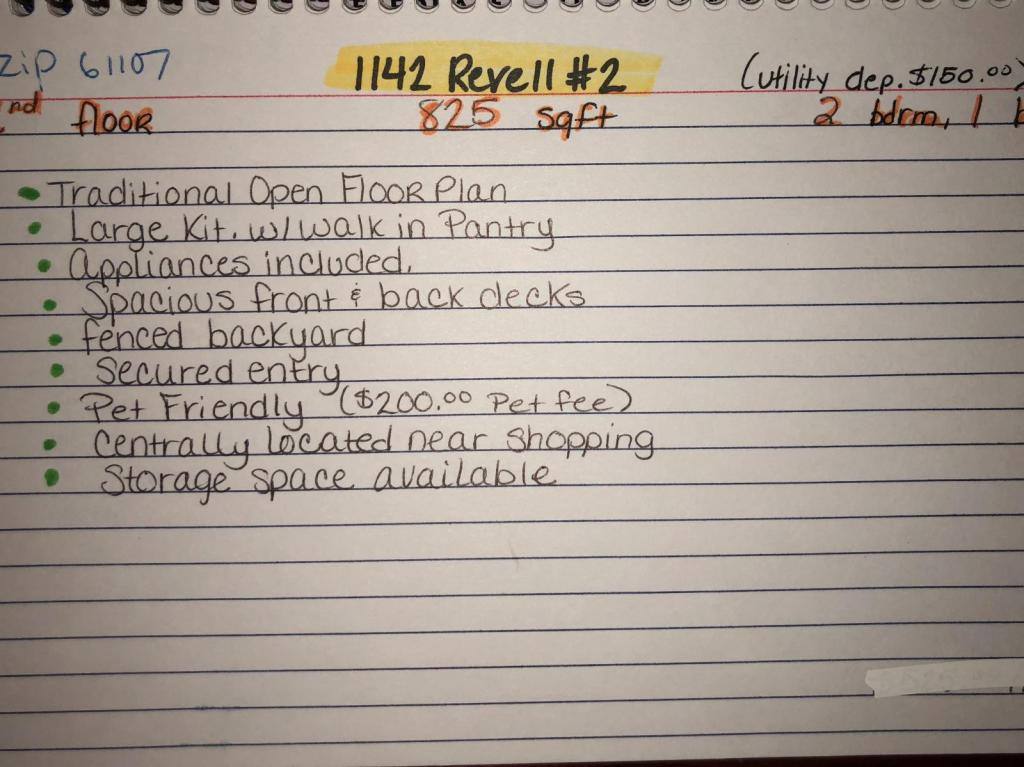 zip 61107 1142 Revell #2 (utility dep. $150.00)
nd floor 825 sqft 2 bdrm, 1 b
• Traditional Open Floor Plan
• Large Kit. w/ walk in Pantry
• Appliances included.
• Spacious front & back decks
• fenced backyard
• Secured entry
• Pet Friendly ($200.00 Pet fee)
• Centrally located near shopping
• Storage space available